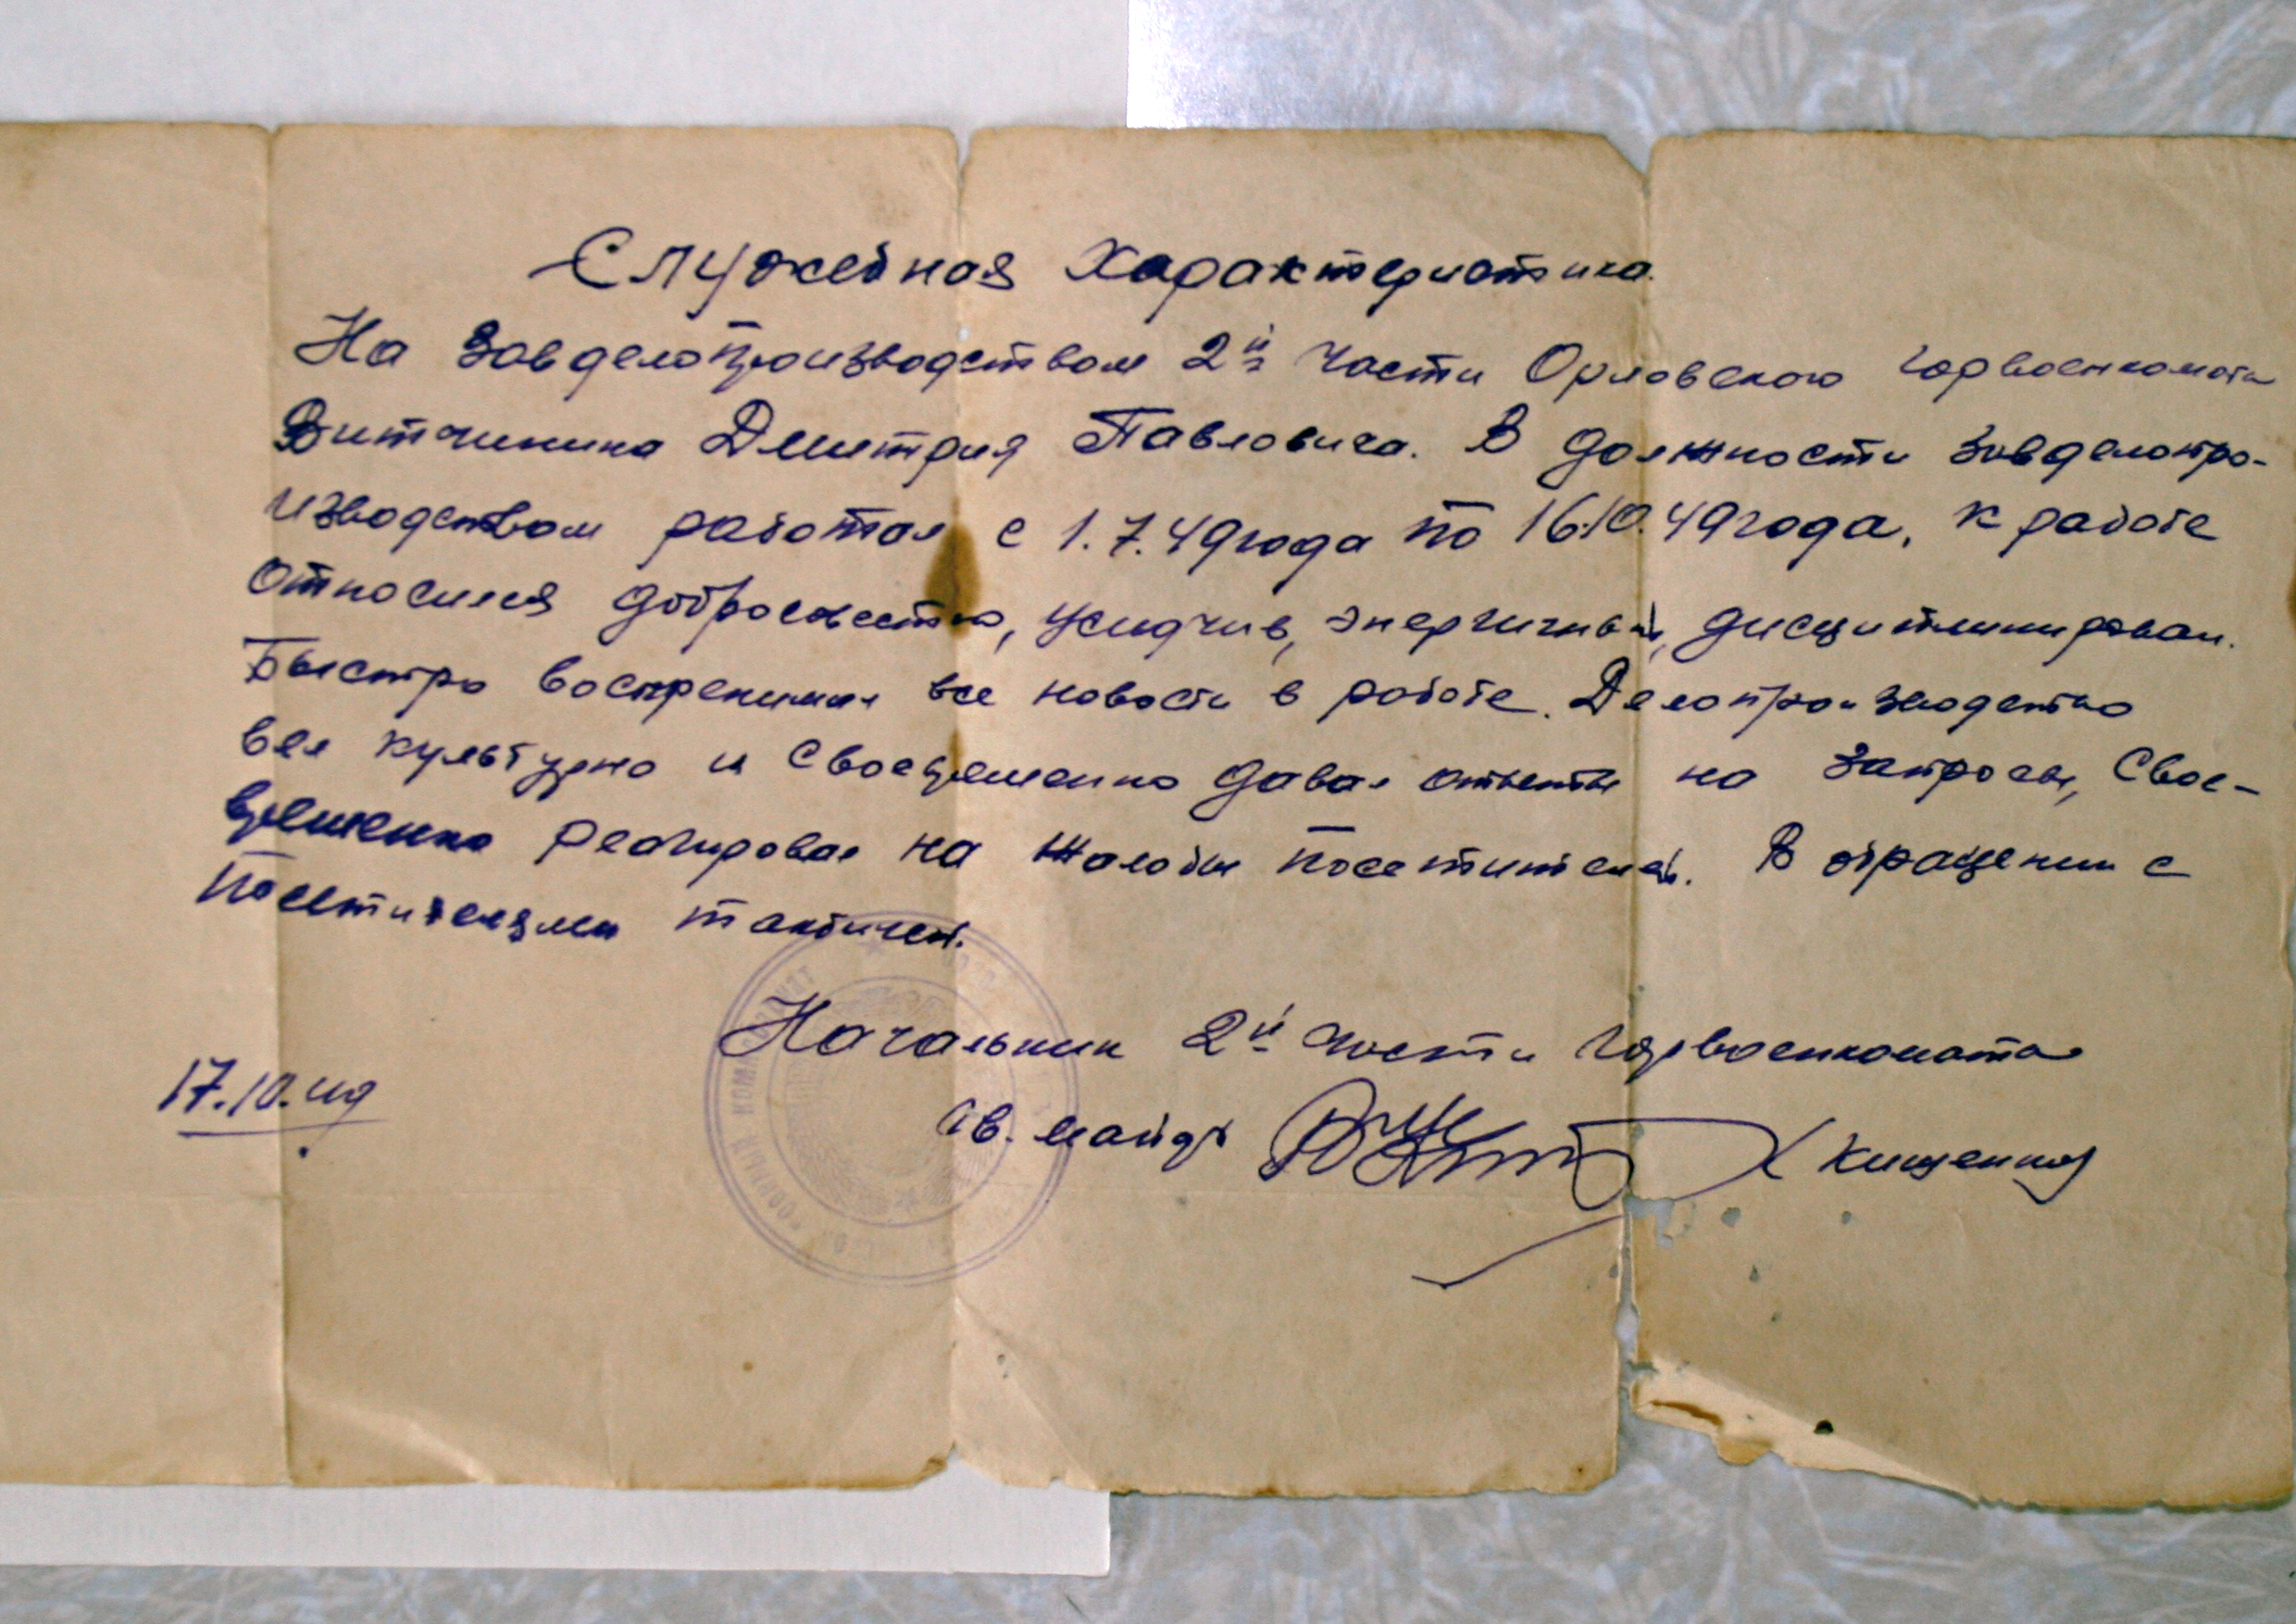 Служебная характеристика.
На Завделопроизводством 2й части Орловского Горвоенкомата
Витчинина Дмитрия Павловича. В должности завделопро-
изводством работал с 1.7.49 года по 16.10.49 года, к работе
относился добросовестно, усидчив, энергичный, дисциплинирован.
Быстро воспренимал все новости в работе. Делопроизводство
вел культурно и своевременно давал ответы на запросы, Свое-
временно реагировал на жалобы посетителей. В обращении с
посетителями тактичен.
Начальник 2й части Горвоенкомата
17.10.49
Гв. майор (Кищенко)